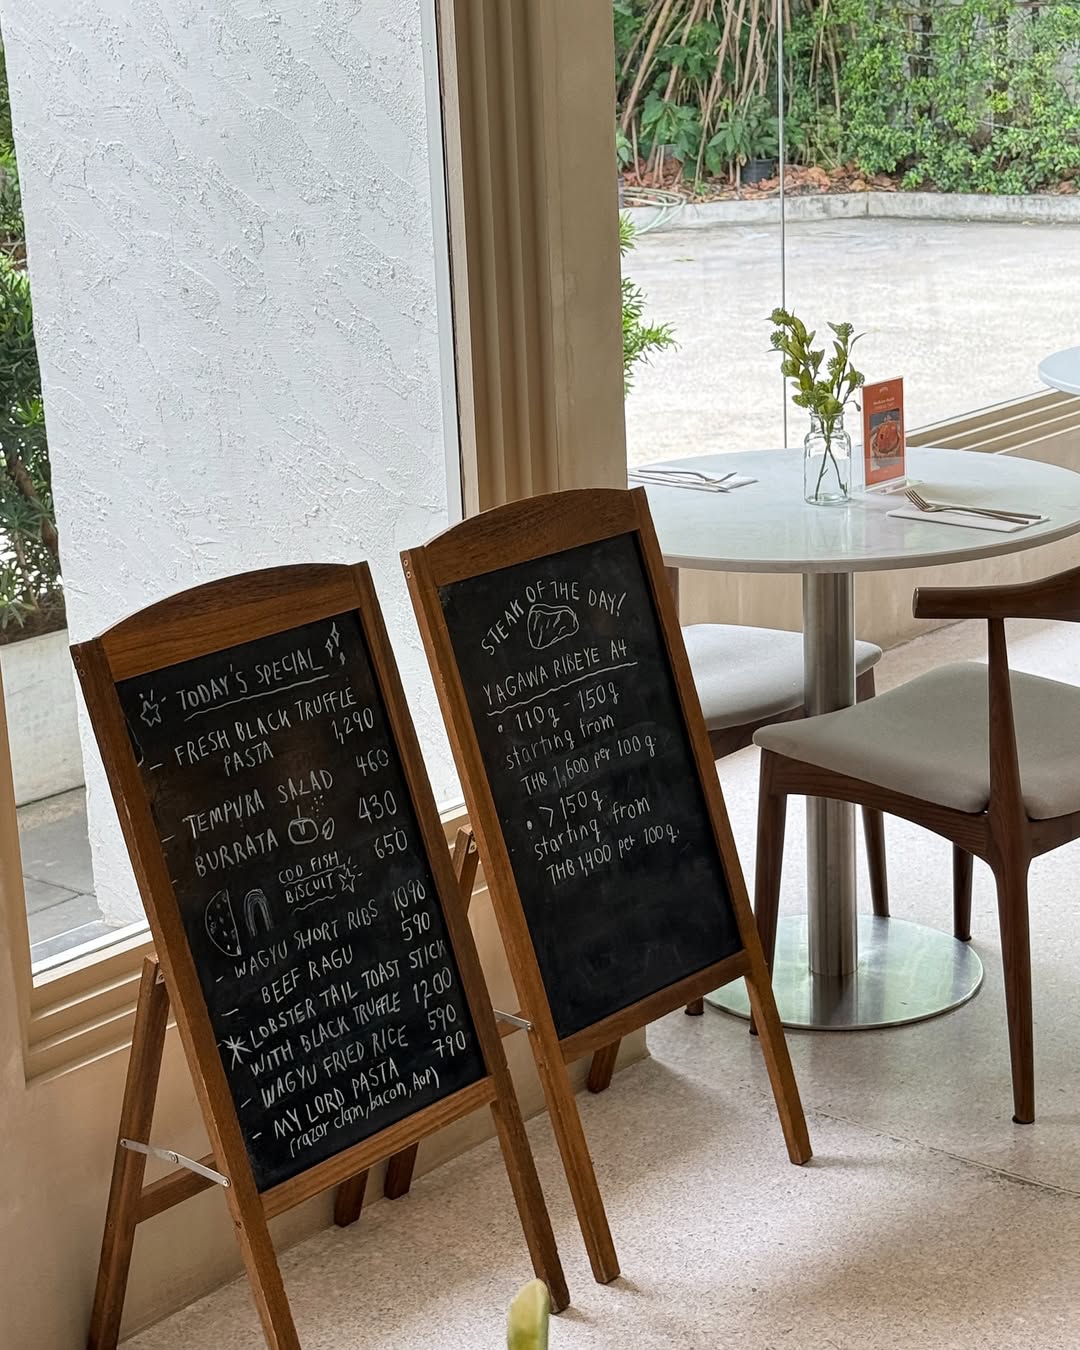 TODAY'S SPECIAL
- FRESH BLACK TRUFFLE
PASTA 1,290
- TEMPURA SALAD 460
- BURRATA 430
COD FISH 650
BISCUIT
- WAGYU SHORT RIBS 1090
BEEF RAGU 590
- LOBSTER TAIL TOAST STICK
WITH BLACK TRUFFLE 1200
- WAGYU FRIED RICE 590
- MY LORD PASTA 790
(razor clam, bacon, AOP)
STEAK OF THE DAY!
YAGAWA RIBEYE A4
• 110g - 150g
starting from
THB 1,600 per 100 g.
• > 150g
starting from
THB 1,400 per 100g.